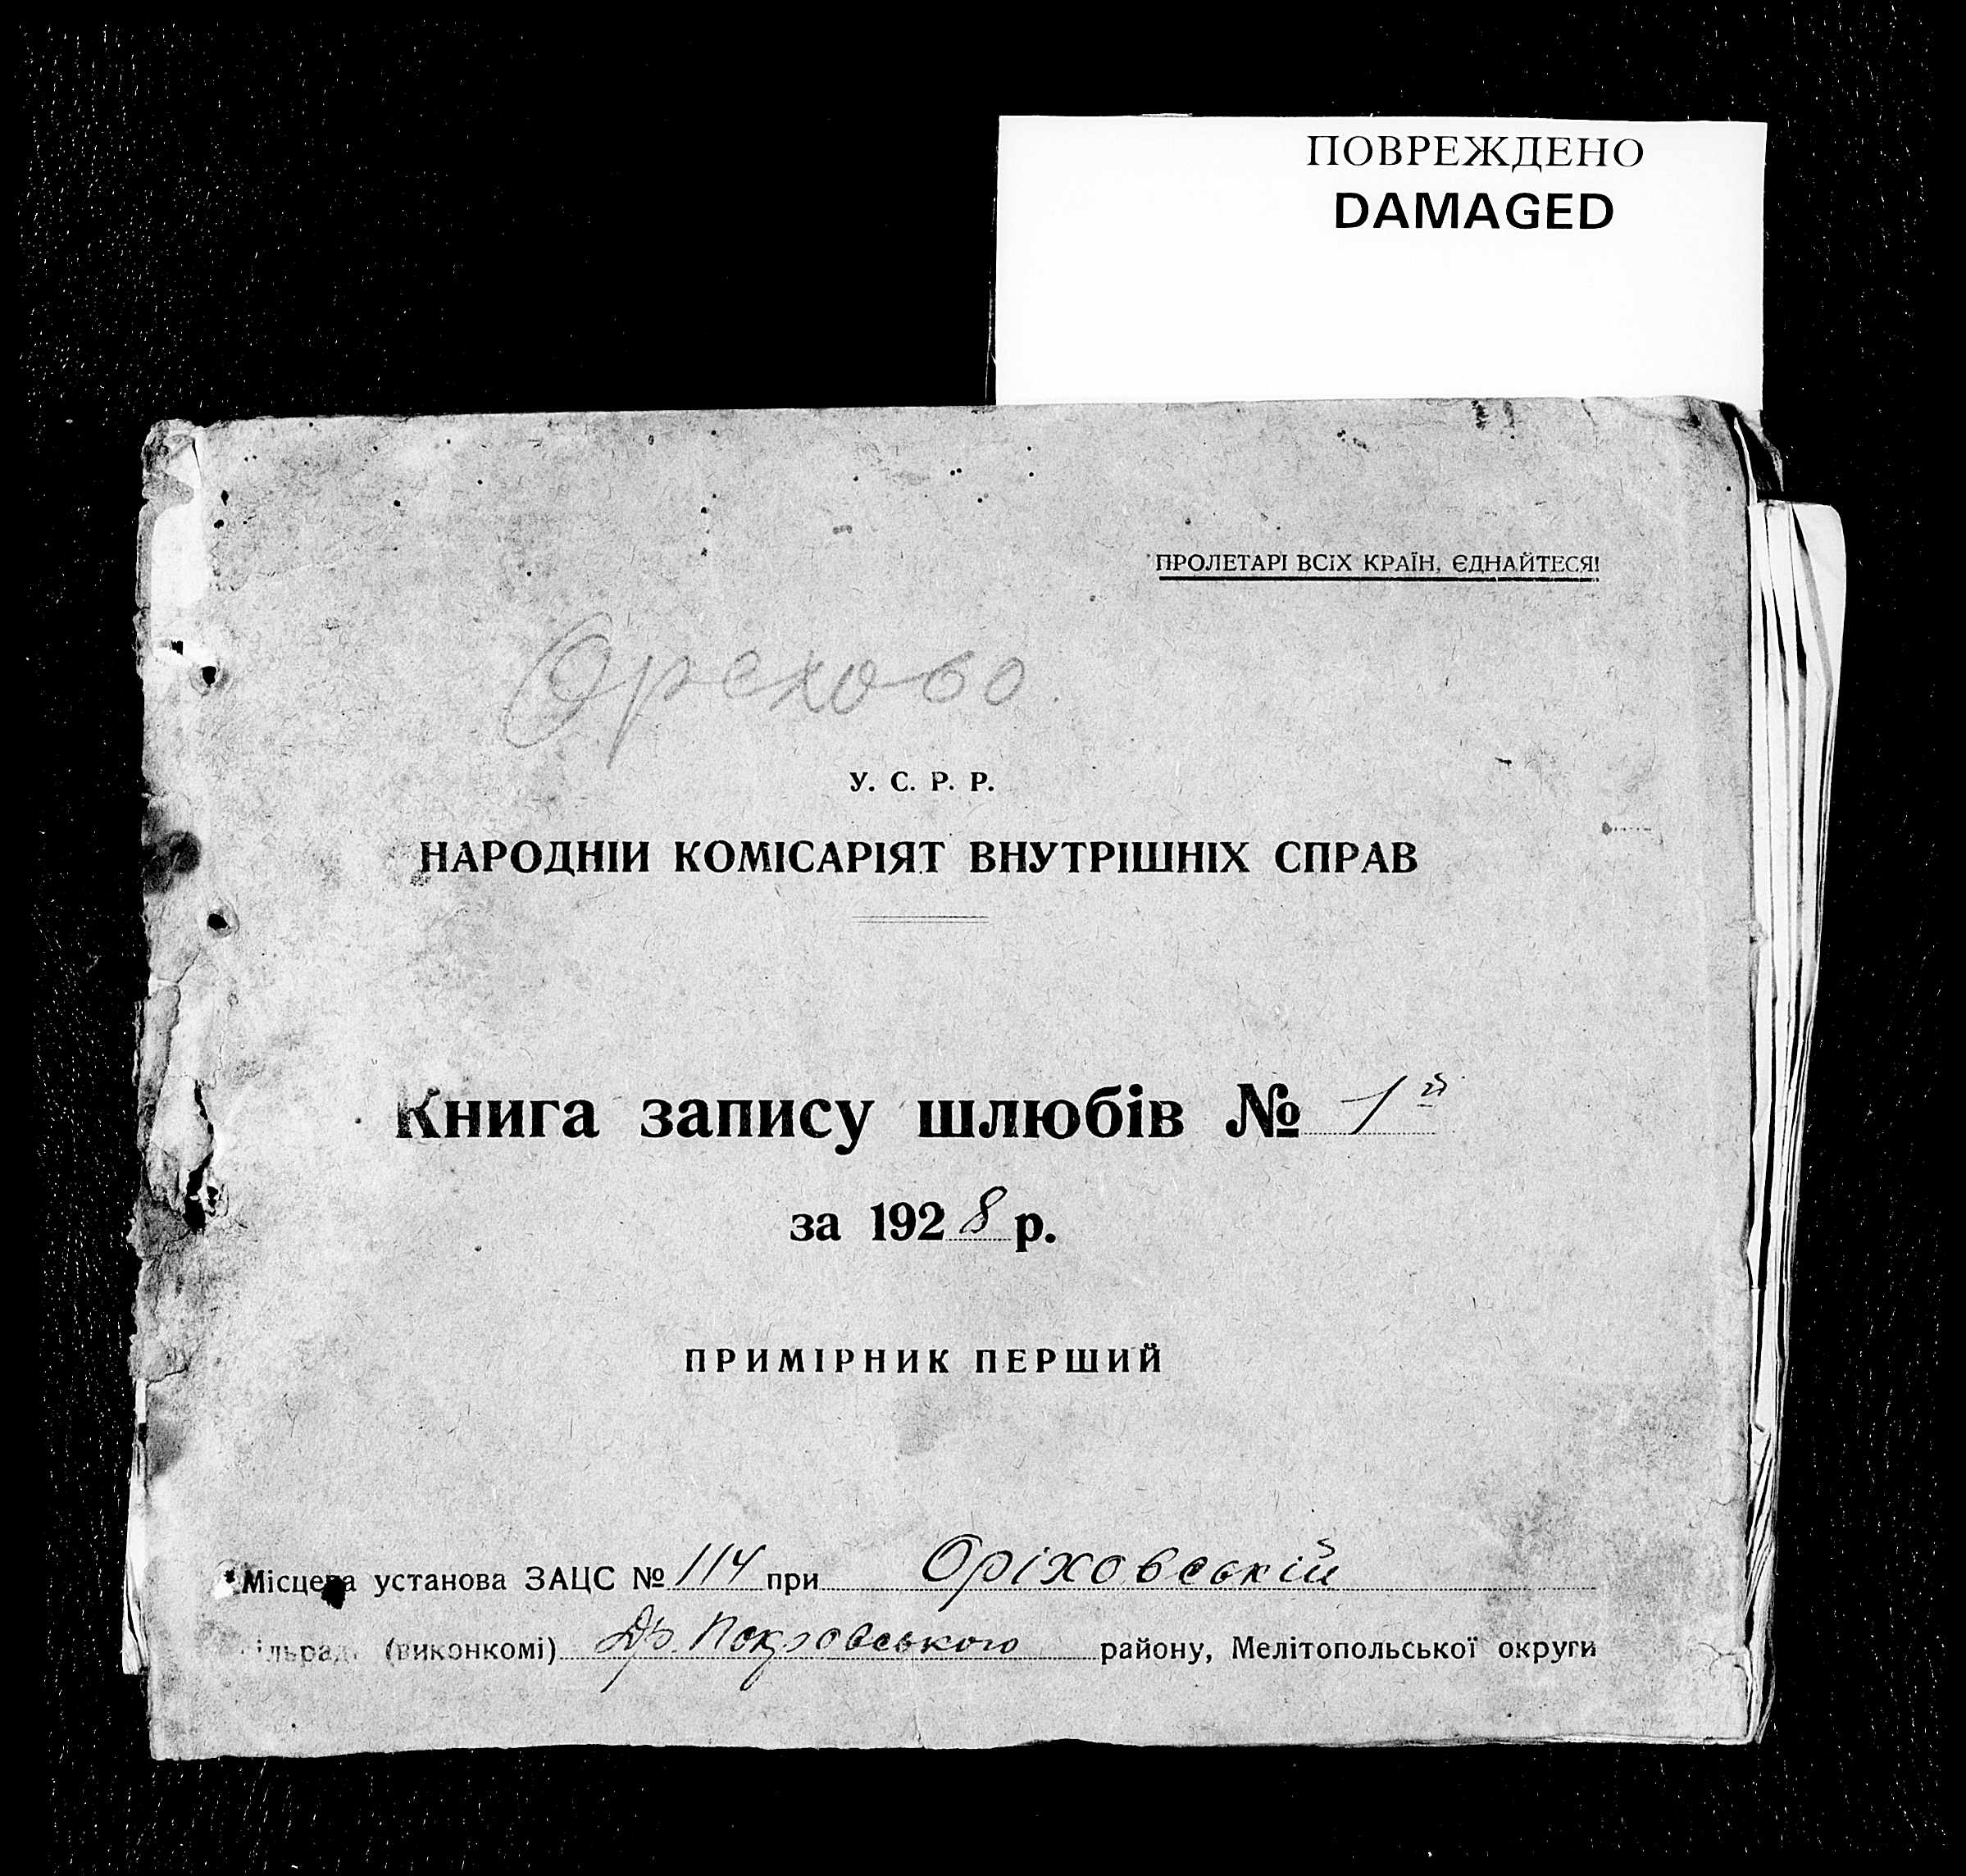 ПОВРЕЖДЕНО
DAMAGED
ПРОЛЕТАРІ ВСІХ КРАЇН, ЄДНАЙТЕСЯ!
Орехово
У. С. Р. Р.
НАРОДНІЙ КОМІСАРІЯТ ВНУТРІШНІХ СПРАВ
Книга запису шлюбів № 1й
за 1928 р.
ПРИМІРНИК ПЕРШИЙ
Місцева установа ЗАЦС № 114 при Оріховській
сільраді (виконкомі) Др. Покровського району, Мелітопольської округи